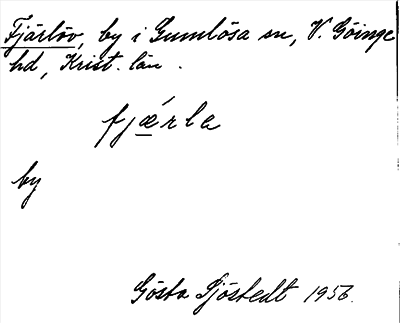 Fjärlöv, by i Gumlösa sn, V. Göinge
hd, Krist. län.
fjǽrla
by
Gösta Sjöstedt 1956.